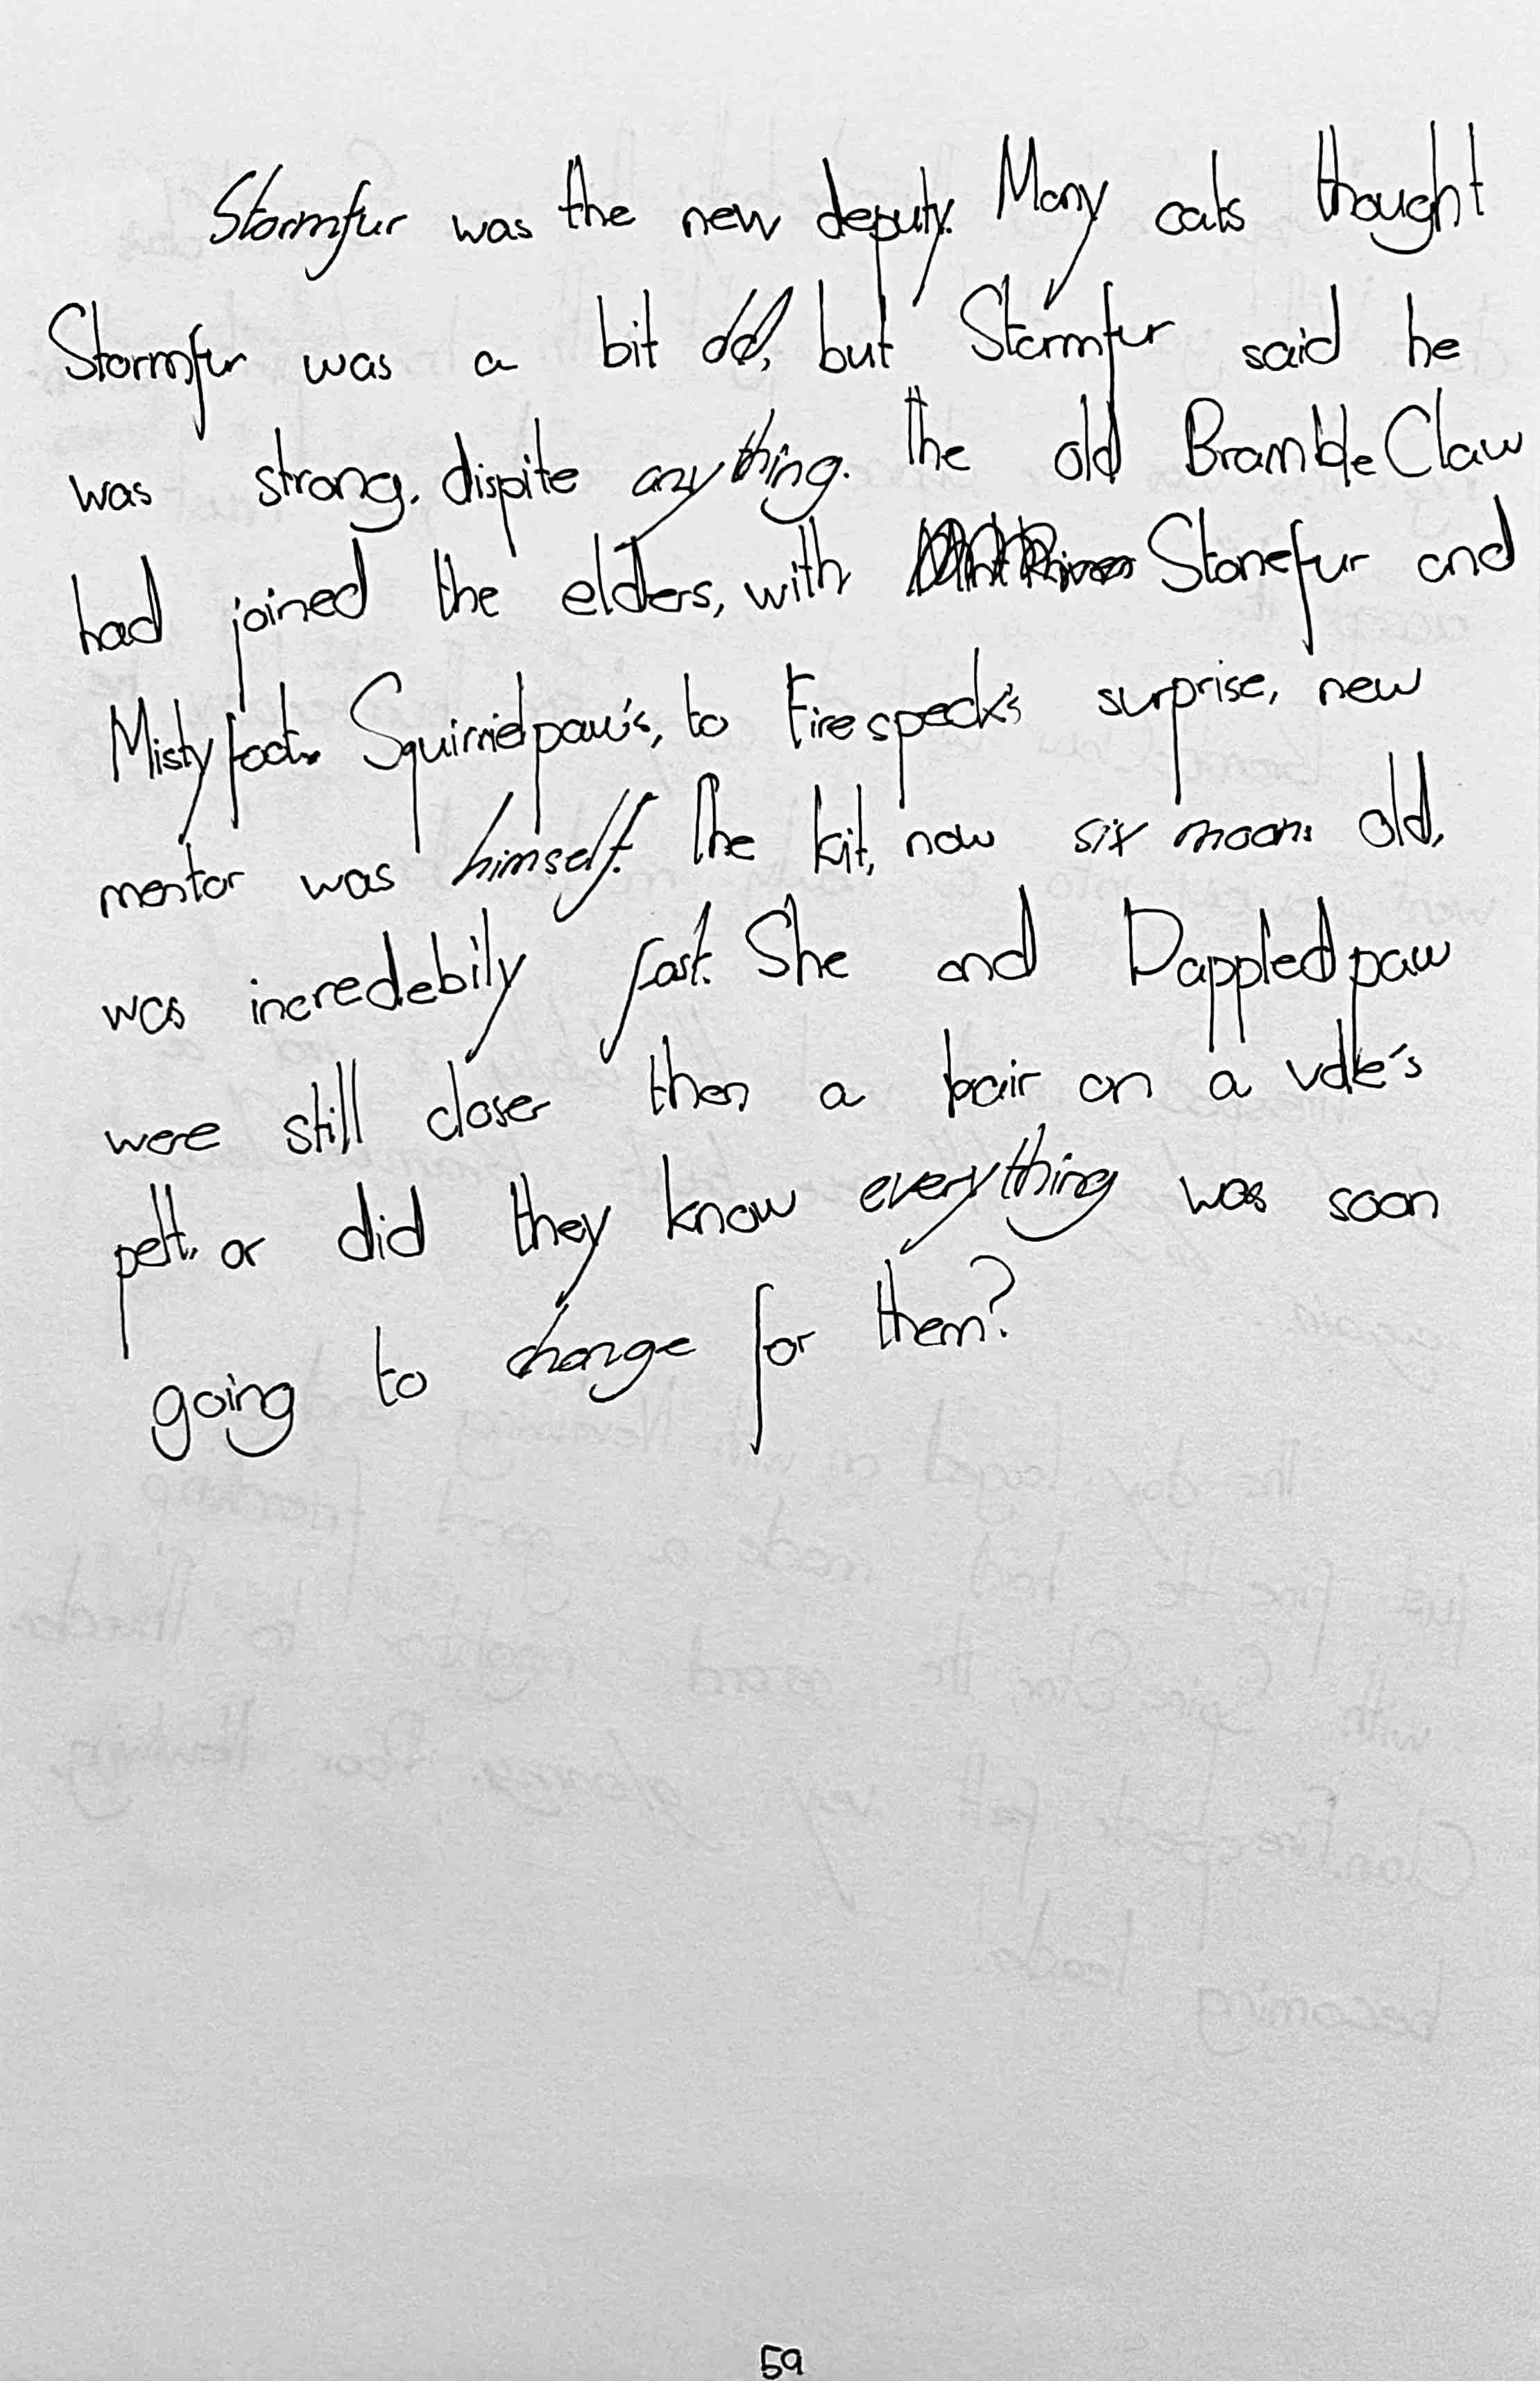 Stormfur was the new deputy. Many cats thought
Stormfur was a bit old, but Stormfur said he
was strong. dispite anything. The old BrambleClaw
had joined the elders, with Stonefur and
Mistyfoot. Squirrelpaw's, to Firespeck's surprise, new
mentor was himself. The kit, now six moons old,
was incredebily fast. She and Dappledpaw
were still closer then a hair on a vole's
pelt. or did they know everything was soon
going to change for them?
59